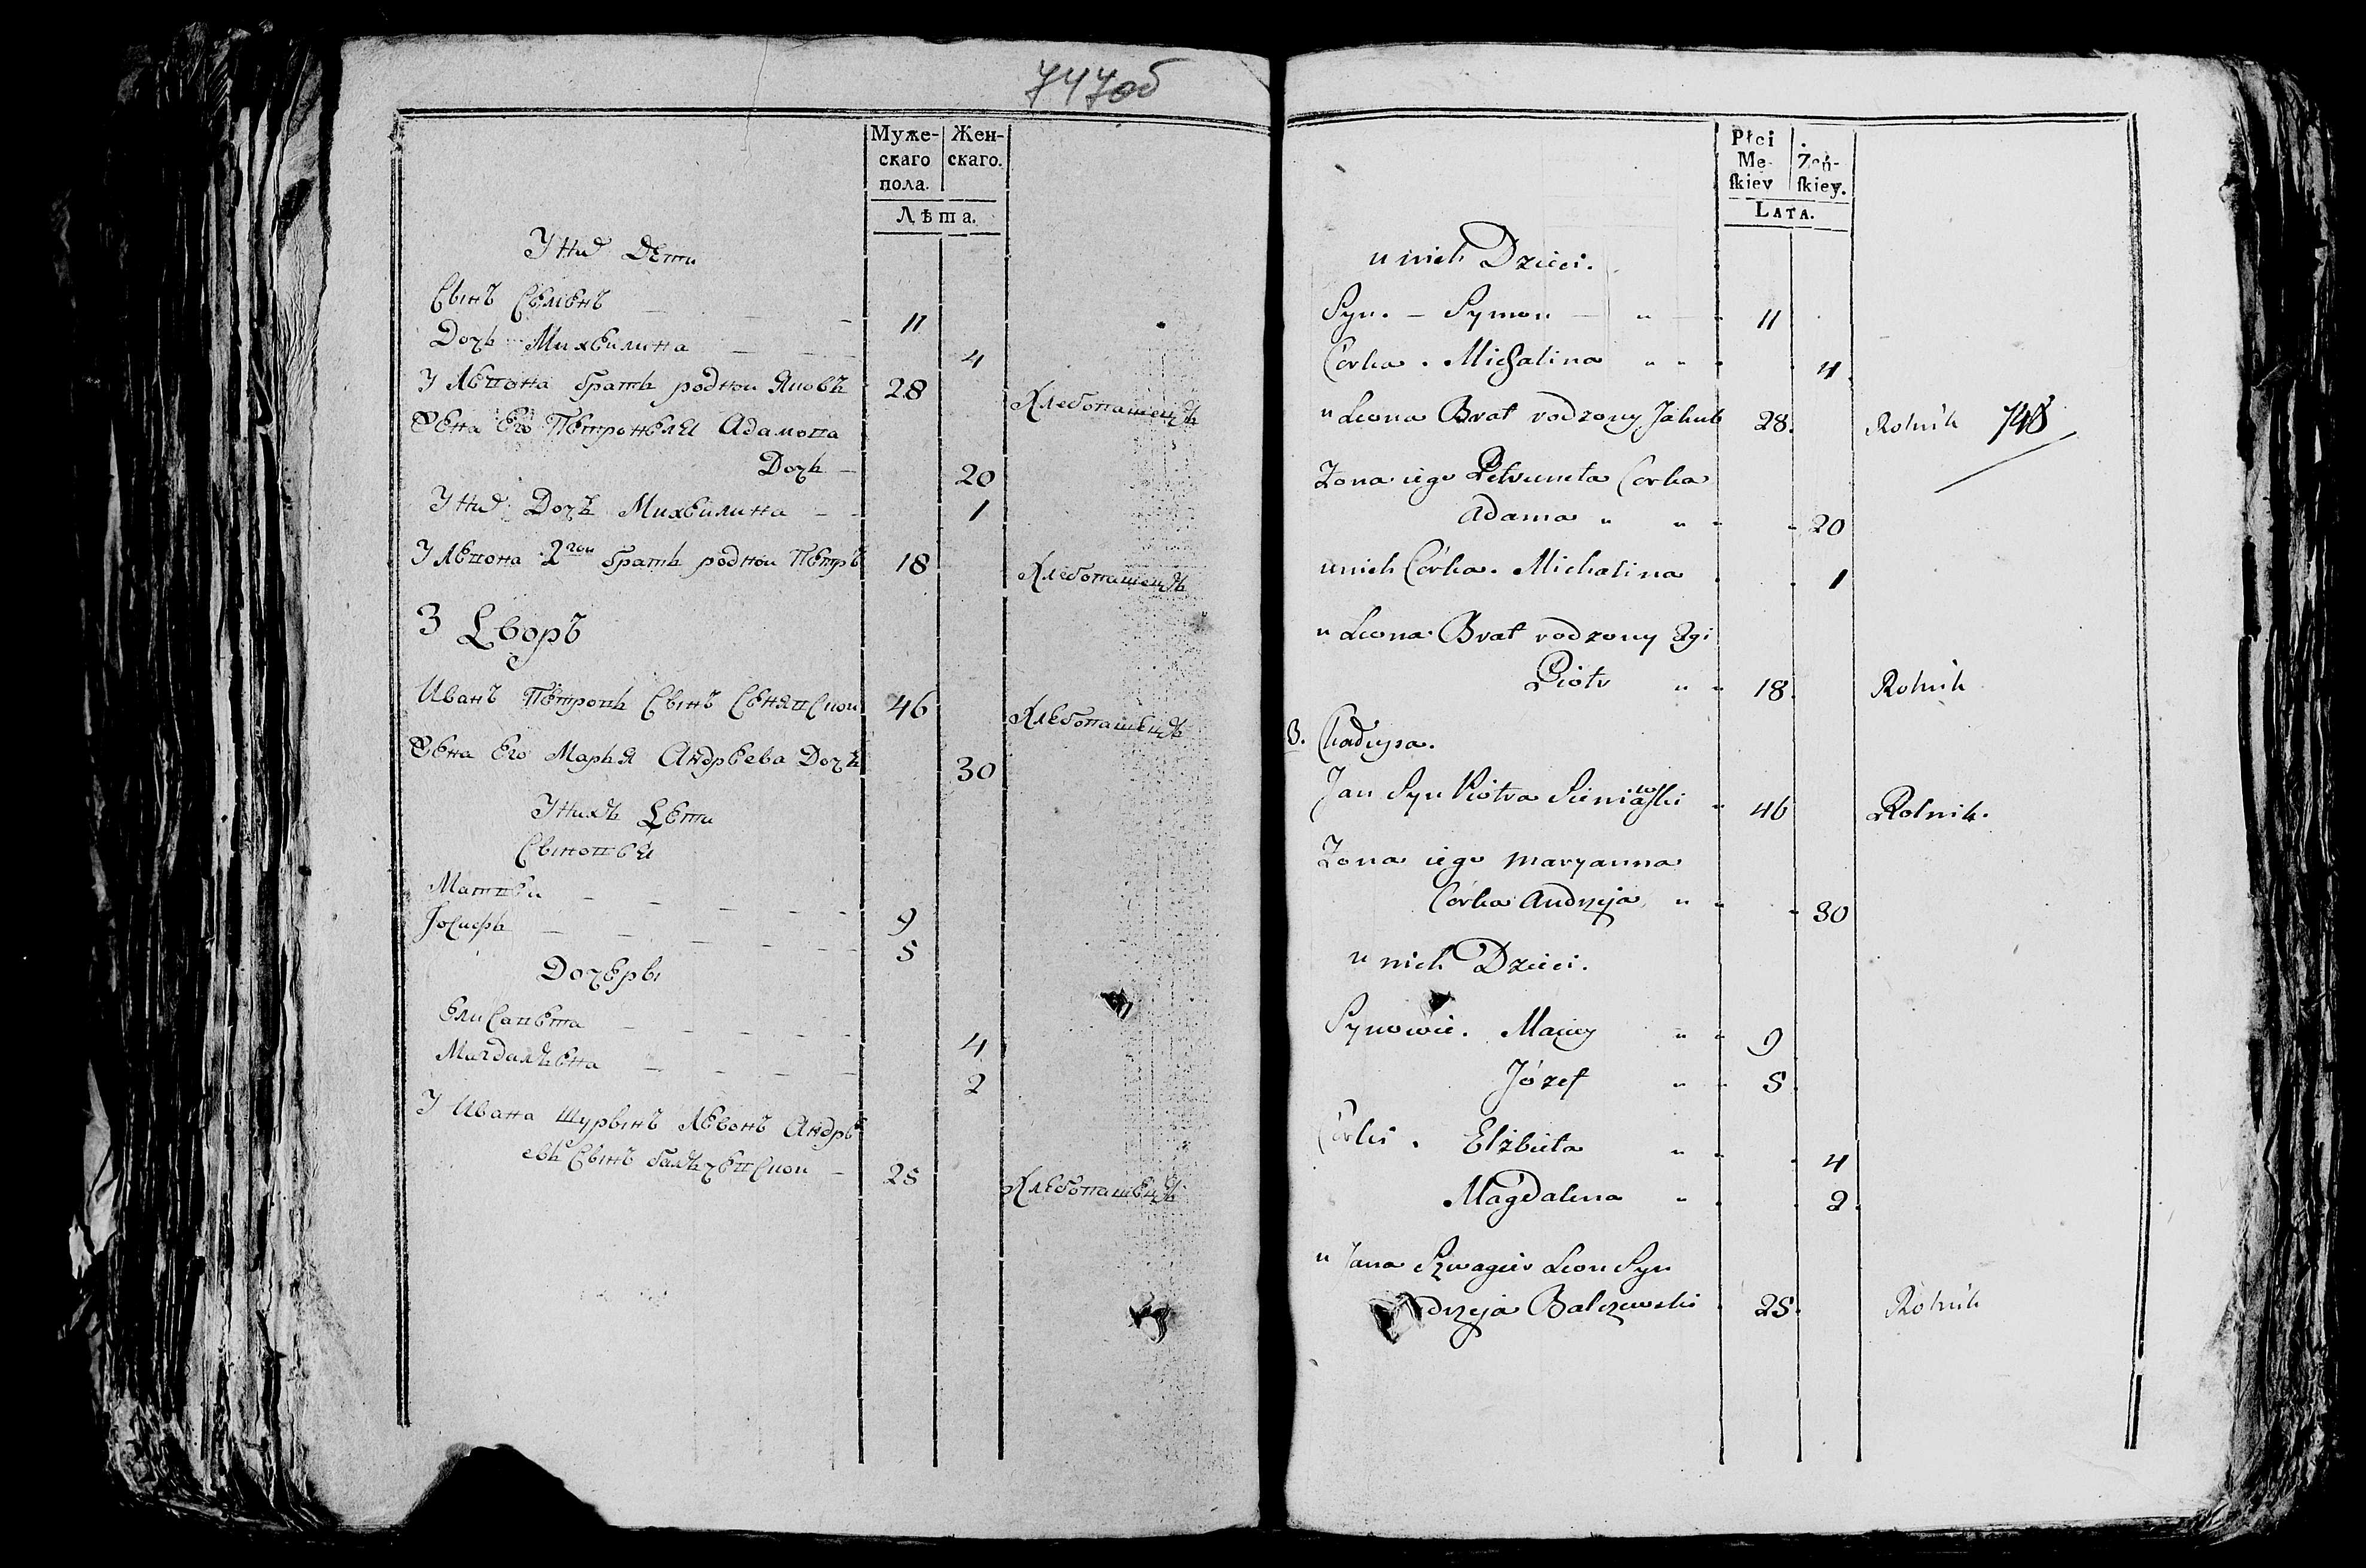 747об
Муже-
скаго
пола.
Жен-
скаго.
Лѣта.
У нихъ Дети
Сынъ Сѣменъ 11
Дочь Михѣилина 4
У Лѣвона братъ родной Яковъ 28 Хлебопашецъ
Жена Его Петронеля Адамова
Дочь 20
У нихъ Дочь Михѣилина 1
У Лѣвона 2гои братъ родной Петръ 18 Хлебопашецъ
3 Дворъ
Иванъ Петровъ Сынъ Сенявской 46 Хлебопашецъ
Жена Его Марья Андрѣева Дочь 30
У нихъ Дети
Сыновья
Матвѣй 9
Iосифъ 5
Дочеры
Елисавета 4
Магдалѣна 2
У Ивана шурынъ Лѣвонъ Андрѣ
евъ Сынъ балчевской 25 Хлебопашецъ
Płci
Mę-
ſkiey
Zeń-
ſkiey.
LATA.
u nich Dzieci.
Syn. – Symon 11
Córka. Michalina 4
u Leona Brat rodzony Jakub 28. Rolnik 748
Zona iego Petrunela Corka
Adama 20
u nich Córka. Michalina 1
u Leona Brat rodzony 2gi
Piotr 18. Rolnik
3. Chałupa.
Jan Syn Piotra Sieniawski 46 Rolnik.
Zona iego Maryanna
Córka Andrzeja 30
u nich Dzieci.
Synowie. Maciey 9
Józef 5
Córki. Elżbieta 4
Magdalena 2.
u Jana Szwagier Leon Syn
drzeja Balczewski 25. Rolnik